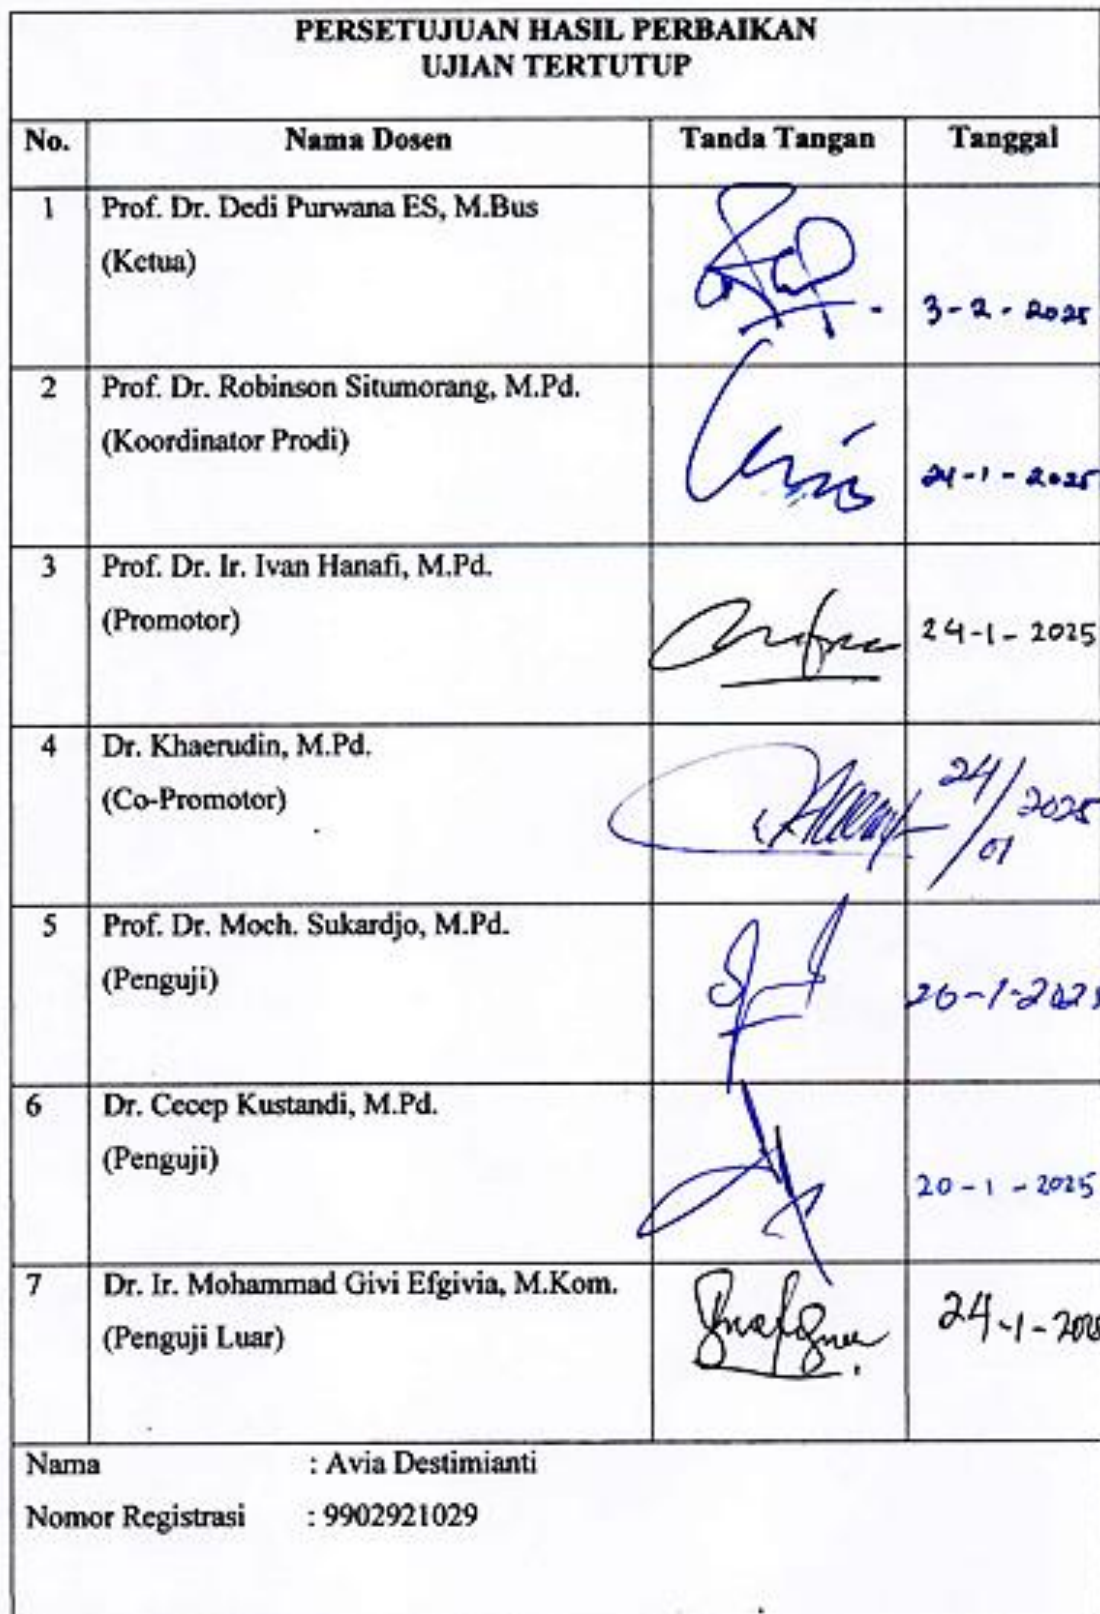 PERSETUJUAN HASIL PERBAIKAN
UJIAN TERTUTUP
No. Nama Dosen Tanda Tangan Tanggal
1 Prof. Dr. Dedi Purwana ES, M.Bus
(Ketua)
3-2-2025
2 Prof. Dr. Robinson Situmorang, M.Pd.
(Koordinator Prodi)
24-1-2025
3 Prof. Dr. Ir. Ivan Hanafi, M.Pd.
(Promotor) 24-1-2025
4 Dr. Khaerudin, M.Pd.
(Co-Promotor) 24/01/2025
5 Prof. Dr. Moch. Sukardjo, M.Pd.
(Penguji)
6 Dr. Cecep Kustandi, M.Pd.
(Penguji) 20-1-2025
7 Dr. Ir. Mohammad Givi Efgivia, M.Kom.
(Penguji Luar)
Nama : Avia Destimianti
Nomor Registrasi : 9902921029